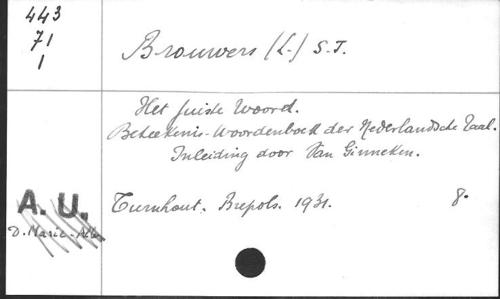 443
71
1
Brouwers (L.) S.J.
Het juiste Woord.
Beteekenis-Woordenboek der Nederlandsche Taal.
Inleiding door Van Ginneken.
Turnhout. Brepols. 1931. 8.
A. U.
D. Marie-